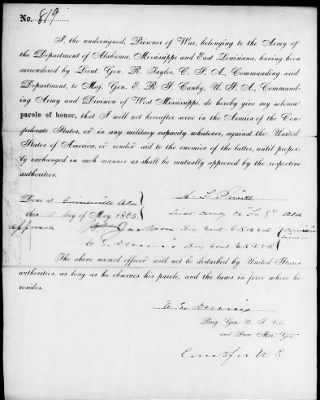 No. 819
I, the undersigned, Prisoner of War, belonging to the Army of
the Department of Alabama, Mississippi and East Louisiana, having been
surrendered by Lieut. Gen. R. Taylor, C. S. A., Commanding said
Department, to Maj. Gen. E. R. S. Canby, U. S. A., Command-
ing Army and Division of West Mississippi, do hereby give my solemn
parole of honor, that I will not hereafter serve in the Armies of the Con-
federate States, or in any military capacity whatever, against the United
States of America, or render aid to the enemies of the latter, until proper-
ly exchanged in such manner as shall be mutually approved by the respective
authorities.
Done at Gainesville Ala
this day of May, 1865.
Approved Jackson Brig Genl C S A
E. S. Dennis Brig Genl U S Vol
The above named officer will not be disturbed by United States
authorities, as long as he observes his parole, and the laws in force where he
resides.
E. S. Dennis
Brig. Gen. U. S. Vol
and Prov. Mar. Gen
Com'r for U S